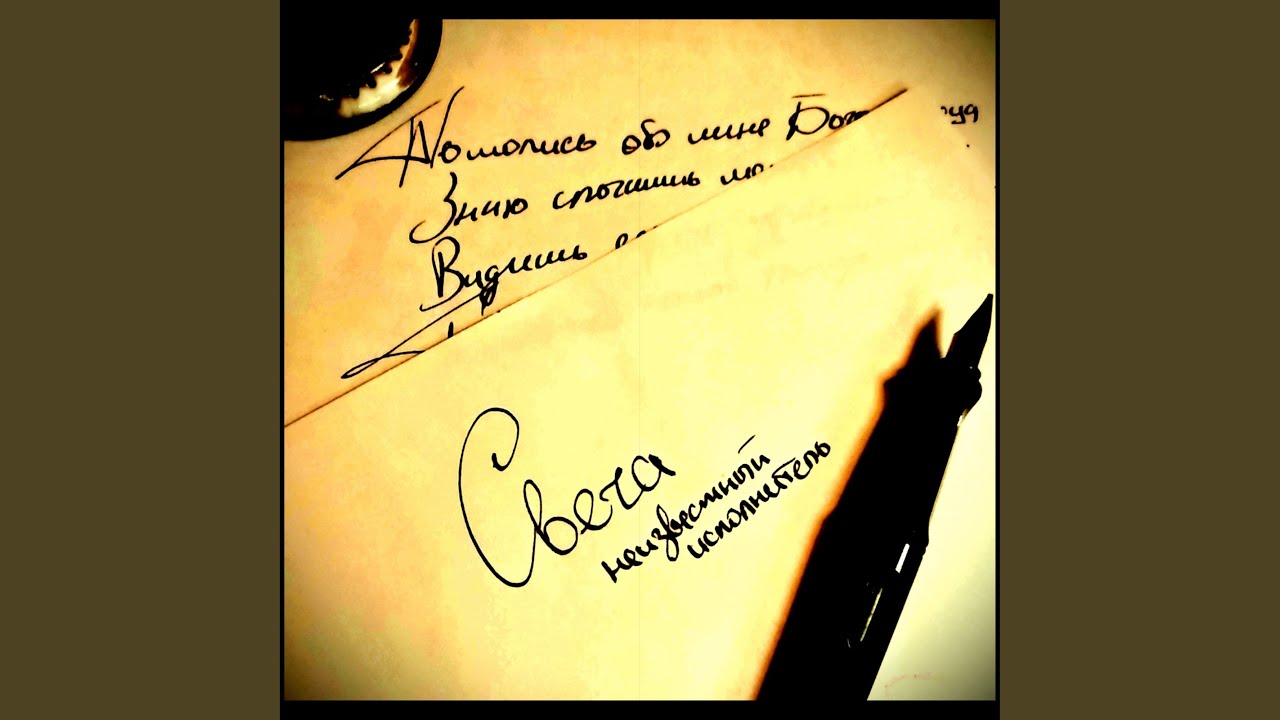 Помолись обо мне
Знаю спросишь
Видишь
Свеча
неизвестный
исполнитель